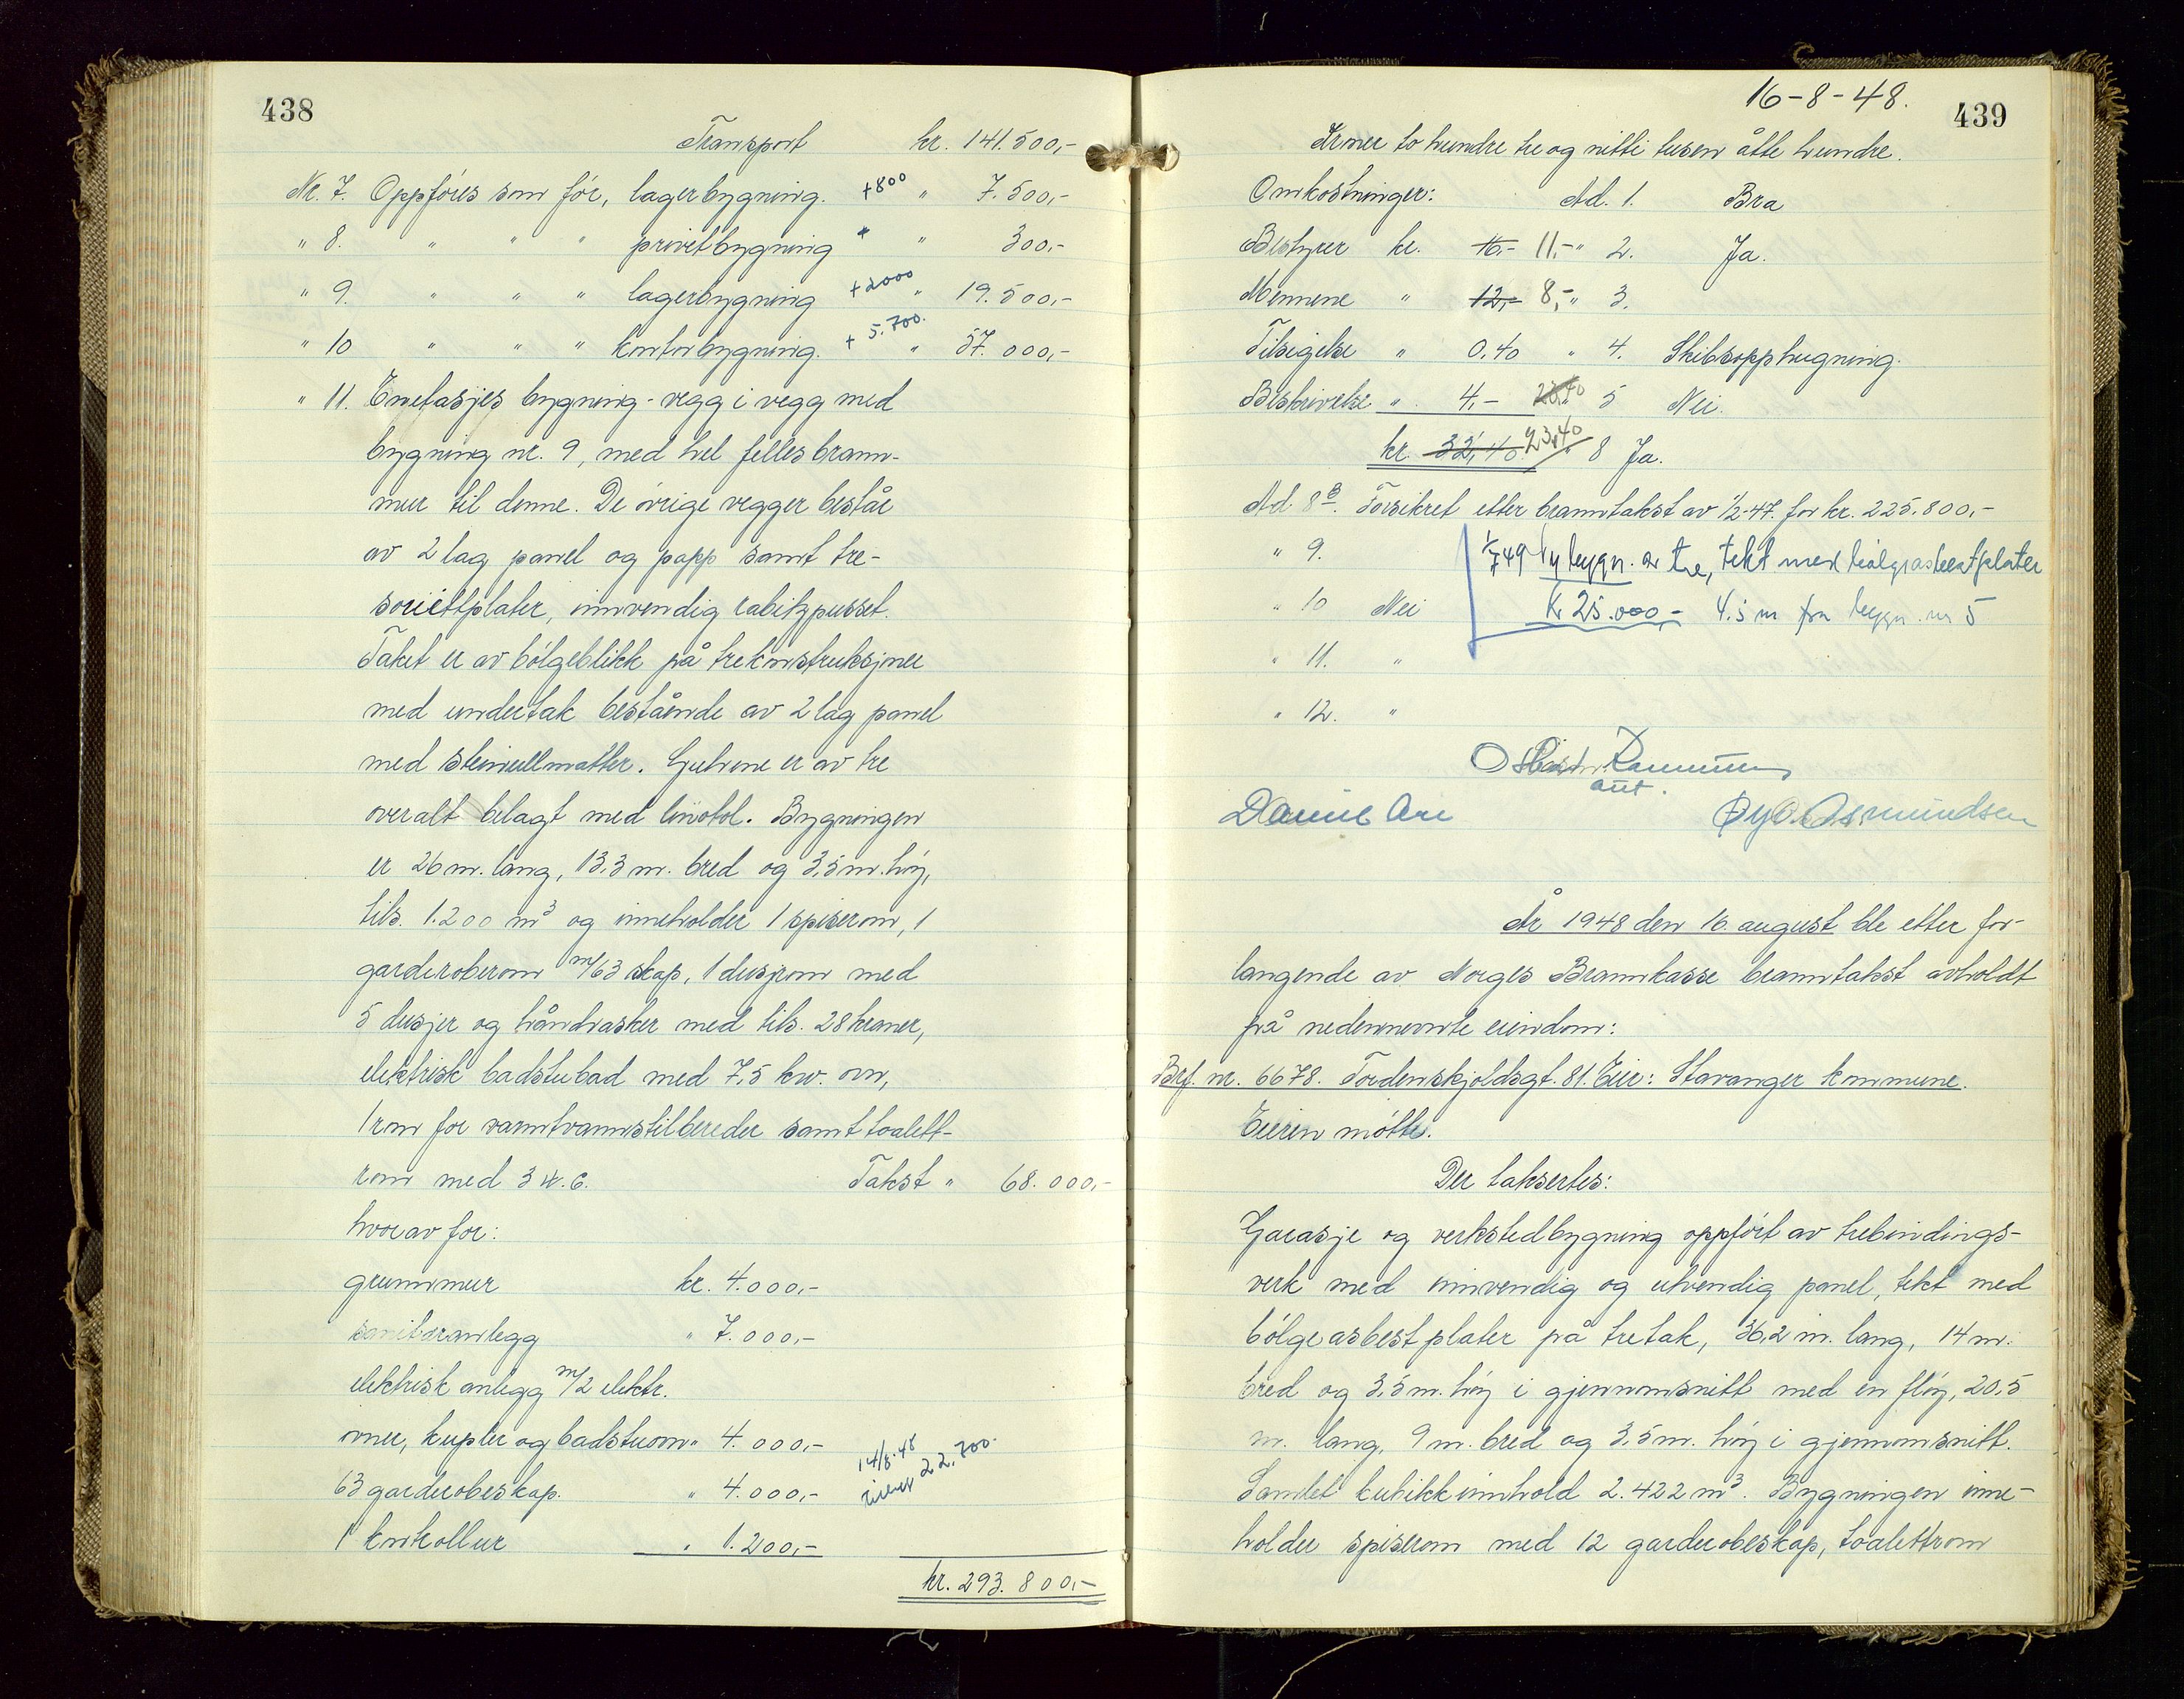 438
Transport kr. 141.500,-
Nr. 7. Oppføres som før, lagerbygning. +800 " 7.500,-
" 8. " " " privetbygning " 300,-
" 9. " " " lagerbygning +2000 " 19.500,-
" 10 " " " kontorbygning. + 5.700. " 57.000,-
" 11. Enetasjes bygning - vegg i vegg med
bygning nr. 9, med hel felles brann-
mur til denne. De øvrige vegger består
av 2 lag panel og papp samt tre-
soniittplater, innvendig rabitzpusset.
Taket er av bølgeblikk på trekonstruksjoner
med undertak bestående av 2 lag panel
med steinullmatter. Gulvene er av tre
overalt belagt med linotol. Bygningen
er 26 m. lang, 13.3 m. bred og 3,5 m. høy,
tils. 1.200 m³ og inneholder 1 spiserom, 1
garderoberom m/63 skap, 1 dusjrom med
5 dusjer og håndvasker med tils. 28 kraner,
elektrisk badstubad med 7,5 kw. ovn,
1 rom for varmtvannstilbereder samt toalett-
rom med 3 W.C. Takst " 68.000,-
hvorav for:
grunnmur kr. 4.000,-
sanitæranlegg " 7.000,-
elektrisk anlegg m/2 elektr.
ovner, kupler og badstuovn " 4.000,-
63 garderobeskap. " 4.000,- 14/8-48 22.700.
1 " 1.200,-
kr. 293.800,-
16-8-48. 439
Kroner to hundre tre og nitti tusen åtte hundre.
Omkostninger: Ad. 1. Bra
Bestyrer kr. 16,- 11,- " 2. Ja.
Mennene " 12,- 8,- " 3.
Tilsigelse " 0.40 " 4. Skibsopphugning.
Beskrivelse " 4,- 23,40 5 Nei.
kr. 32,40 23,40 8 Ja.
Ad 8 B. Forsikret etter branntakst av 1/2-47. for kr. 225.800,-
" 9. 1/7 49 Ny bygn. av tre, tekt med bølgeasbestplater
" 10 Nei Kr 25.000,- 4.5 m fra bygn. nr 5
" 11. "
" 12. "
Rasmussen
aut.
Daniel Øy O. Asmundsen
År 1948 den 16. august ble etter for-
langende av Norges Brannkasse branntakst avholdt
på nedennevnte eiendom:
Brf. nr. 6678. Tordenskjoldsgt. 81. Eier: Stavanger kommune.
Eieren møtte.
Der taksertes:
Garasje og verkstedbygning oppført av trebindings-
verk med innvendig og utvendig panel, tekt med
bølgeasbestplater på tretak, 36,2 m. lang, 14 m.
bred og 3,5 m. høy i gjennomsnitt med en fløy, 20,5
m. lang, 9 m. bred og 3,5 m. høy i gjennomsnitt.
Samlet kubikkinnhold 2.422 m³. Bygningen inne-
holder spiserom med 12 garderobeskap, toalettrom